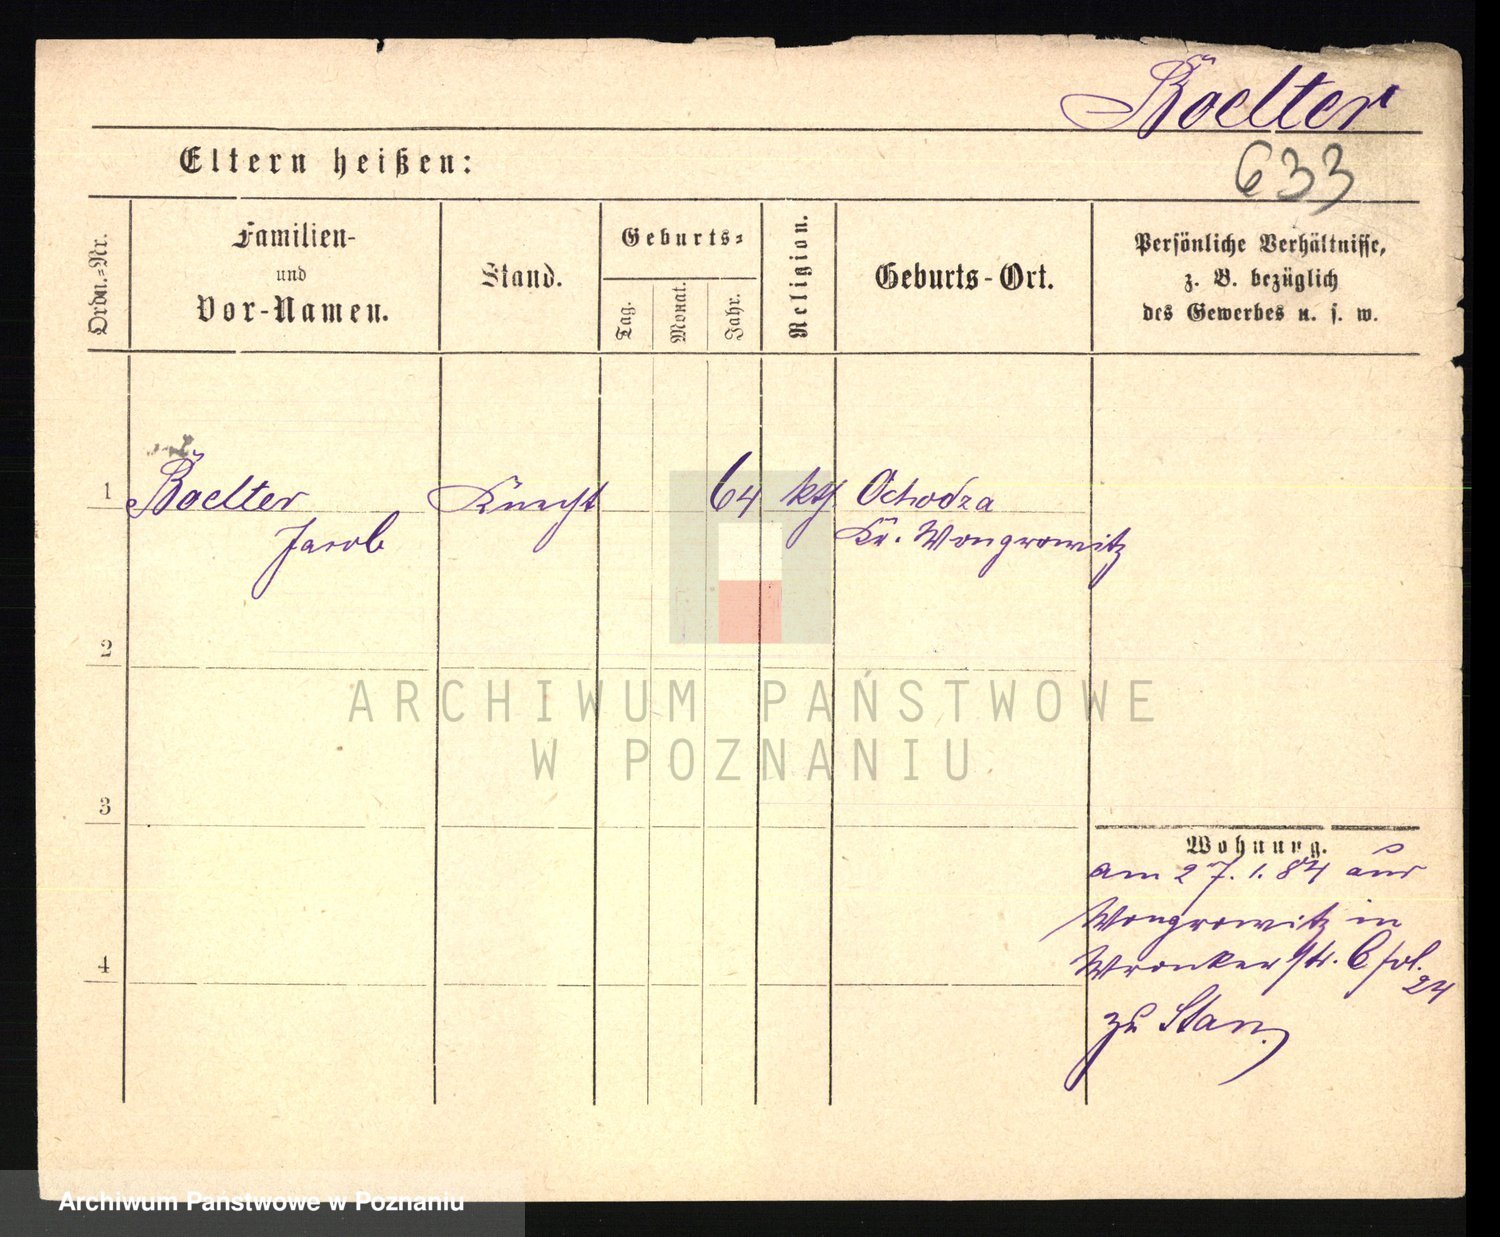 Boelter
633
Eltern heißen:
Ordn.-Nr.
Familien-
und
Vor-Namen.
Stand.
Geburts-
Tag.
Monat.
Jahr.
Religion.
Geburts-Ort.
Persönliche Verhältnisse,
z. B. bezüglich
des Gewerbes u. s. w.
1
Boelter
Jacob
Knecht
64
kth.
Ochodza
Kr. Wongrowitz
2
3
4
Wohnung.
am 27.1.84 aus
Wongrowitz in
Wronkerstr. 6 fol.
24
zu Stan
ARCHIWUM PAŃSTWOWE
W POZNANIU
Archiwum Państwowe w Poznaniu